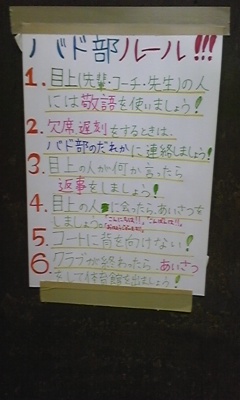 バド部ルール!!!
1. 目上(先輩・コーチ・先生)の人
には敬語を使いましょう!
2. 欠席遅刻をするときは、
バド部のだれかに連絡しましょう!
3. 目上の人が何か言ったら
返事をしましょう!
4. 目上の人に会ったら、あいさつを
しましょう。こんにちは!! こんばんは!!
5. コートに背を向けない!
6. クラブが終わったら、あいさつ
をして体育館を出ましょう!